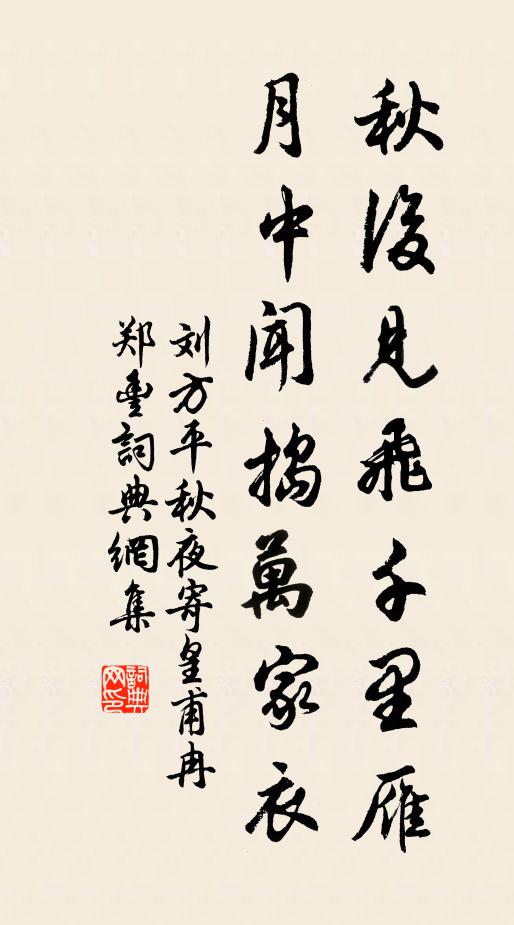 秋後見飛千里雁
月中聞搗萬家衣
刘方平秋夜寄皇甫冉
郑重詞典網集
詞典
网印